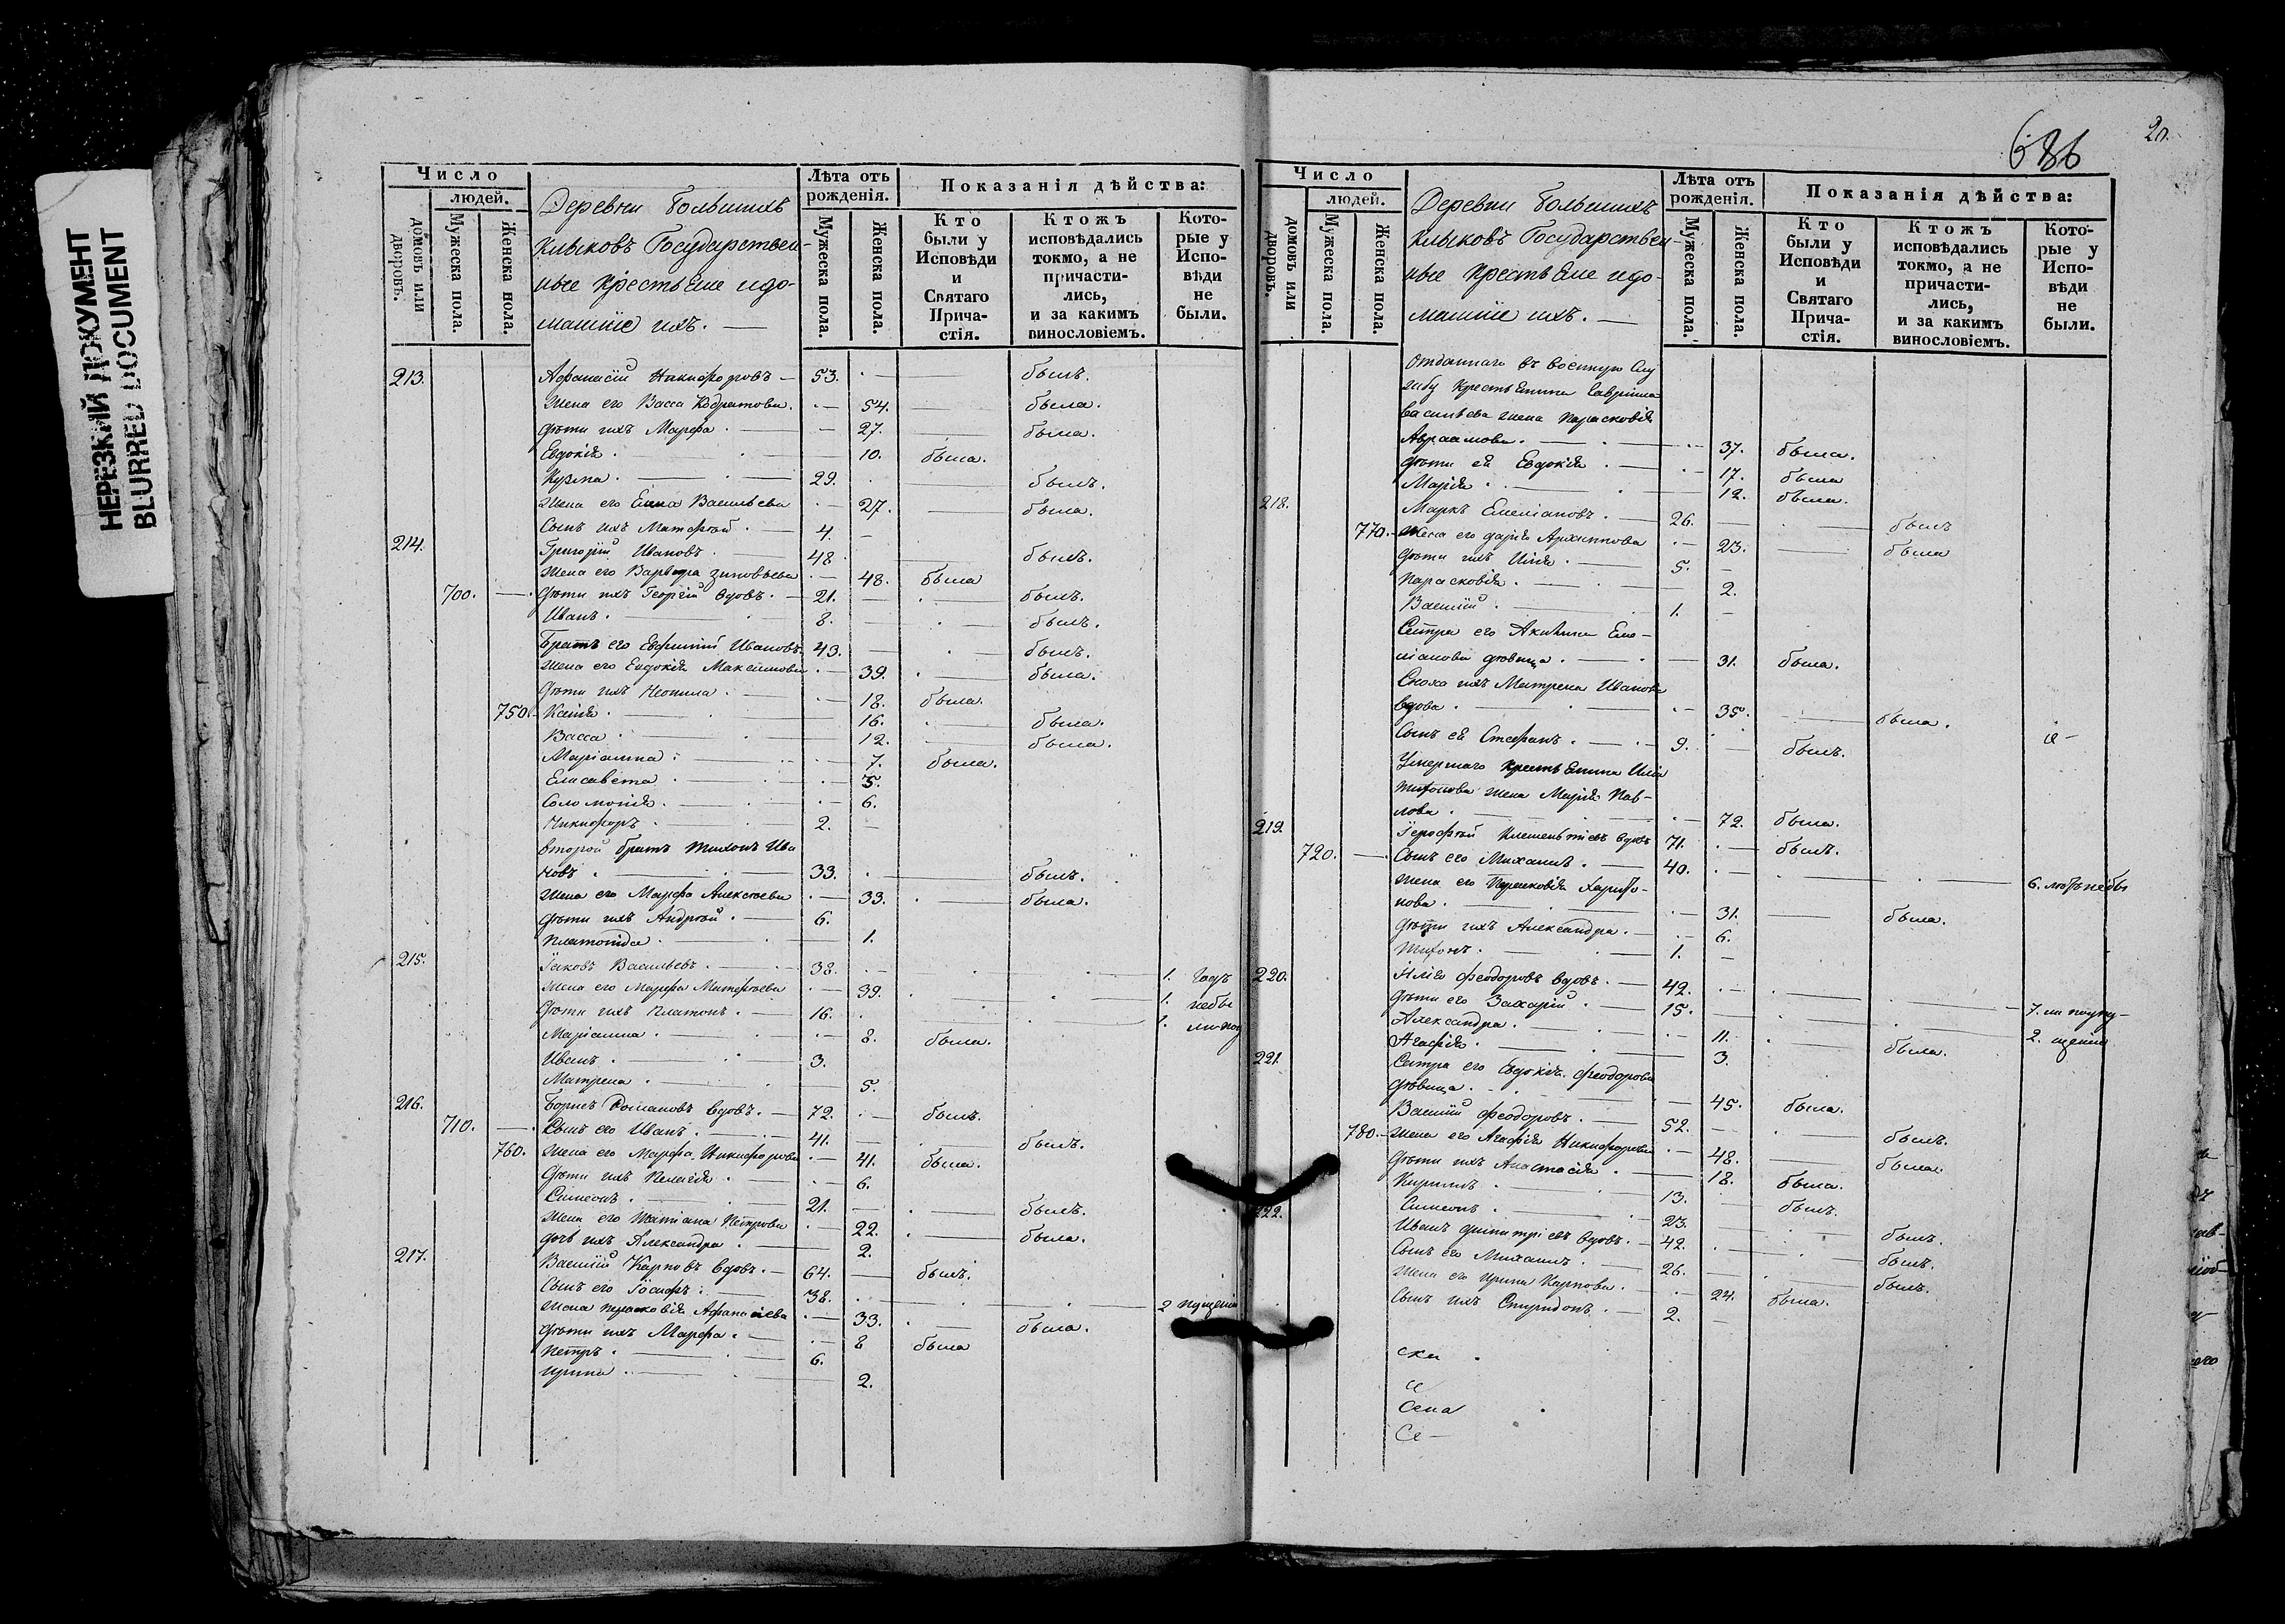 НЕРЕЗКИЙ ДОКУМЕНТ
BLURRED DOCUMENT
Число
людей.
домовъ или дворовъ.
Мужеска пола.
Женска пола.
Деревни Большихъ
Клыковъ Государствен-
ные Крестьяне и до-
машніе ихъ. —
Лѣта отъ рожденія.
Мужеска пола.
Женска пола.
Показанія дѣйства:
Кто были у Исповѣди и Святаго Прича- стія.
Ктожъ исповѣдались токмо, а не причасти- лись, и за какимъ винословіемъ.
Кото- рые у Испо- вѣди не были.
213. Афанасій Никифоровъ — 53. былъ.
Жена его Васса Кодратова. 54. была.
Дѣти ихъ Марфа. 27. была.
Евдокія. 10. была.
Кузма. 29. былъ.
Жена его Елена Васильева 27. была.
Сынъ ихъ Матфѣй. 4.
214. Григорій Ивановъ. 48. былъ.
Жена его Варвара Зиновьева 48. была
700. Дѣти ихъ Георгій вдовъ. 21. былъ.
Иванъ. 8. былъ.
Братъ его Евфимій Ивановъ. 43. былъ.
Жена его Евдокія Максимова 39. была.
Дѣти ихъ Неонила. 18. была.
750. Ксенія. 16. была.
Васса. 12. была.
Маріанна. 7. была.
Елисавета. 5.
Соломонія. 6.
Никифоръ. 2.
второй братъ Тихонъ Ива
новъ. 33. былъ.
Жена его Марфа Алексѣева 33. была.
Дѣти ихъ Андрѣй. 6.
Платонида. 1.
215. Іаковъ Васильевъ. 38. 1.
Жена его Марфа Матфѣева 39. 1. небы
Дѣти ихъ Платонъ. 16. 1.
Маріанна. 8. была.
Иванъ. 3.
Матрена. 5.
216. Борисъ Романовъ вдовъ. 72. былъ.
710. Сынъ его Иванъ. 41. былъ.
760. Жена его Марфа Никифорова 41. была.
Дѣти ихъ Пелагія. 6.
Симеонъ. 21. былъ.
Жена его Татіана Петрова 22. была.
дочь ихъ Александра. 2.
217. Василій Карповъ вдовъ. 64. былъ.
Сынъ его Іосифъ. 38. 2
Жена Прасковія Афанасіева 33. была.
Дѣти ихъ Марфа. 8 была
Петръ. 6.
Ирина. 2.
686
20.
Число
людей.
домовъ или дворовъ.
Мужеска пола.
Женска пола.
Деревни Большихъ
Клыковъ Государствен-
ные Крестьяне и до-
машніе ихъ. —
Лѣта отъ рожденія.
Мужеска пола.
Женска пола.
Показанія дѣйства:
Кто были у Исповѣди и Святаго Прича- стія.
Ктожъ исповѣдались токмо, а не причасти- лись, и за какимъ винословіемъ.
Кото- рые у Испо- вѣди не были.
Отданнаго въ военную слу
жбу Крестьянина Гавріила
Васильева жена Парасковія
Авраамова. 37. была.
Дѣти ея Евдокія. 17. была
Марія. 12. была.
218. Маркъ Емеліановъ. 26. былъ
770. Жена его Дарія Архиппова 23. была
Дѣти ихъ Илія. 5.
Парасковія. 2.
Василій. 1.
Сестра его Акилина Еме-
ліанова дѣвица. 31. была.
Сноха ихъ Матрена Иванова
вдова. 35. была.
Сынъ ея Стефанъ. 9. былъ.
Умершаго крестьянина Иліи
Тихонова жена Марія Пав-
лова. 72. была.
219. Іерофѣй Климентіевъ вдовъ 71. былъ.
720. Сынъ его Михаилъ. 40. 6.
Жена его Парасковія Харито-
нова. 31. была.
Дѣти ихъ Александра. 6.
Тихонъ. 1.
220. Илія Феодоровъ вдовъ. 42.
Дѣти его Захарій. 15. 7.
Александра. 11. была. 2.
Агафія. 3.
221. Сестра его Евдокія Феодорова
дѣвица. 45. была.
Василій Феодоровъ. 52. былъ.
780. Жена его Агафія Никифорова 48. была.
Дѣти ихъ Анастасія. 18. была.
Кириллъ. 13. былъ.
Симеонъ. 23. былъ.
222. Иванъ Димитріевъ вдовъ. 42. былъ.
Сынъ его Михаилъ. 26. былъ.
Жена его Ирина Карпова. 24. была.
Сынъ ихъ Спиридонъ. 2.